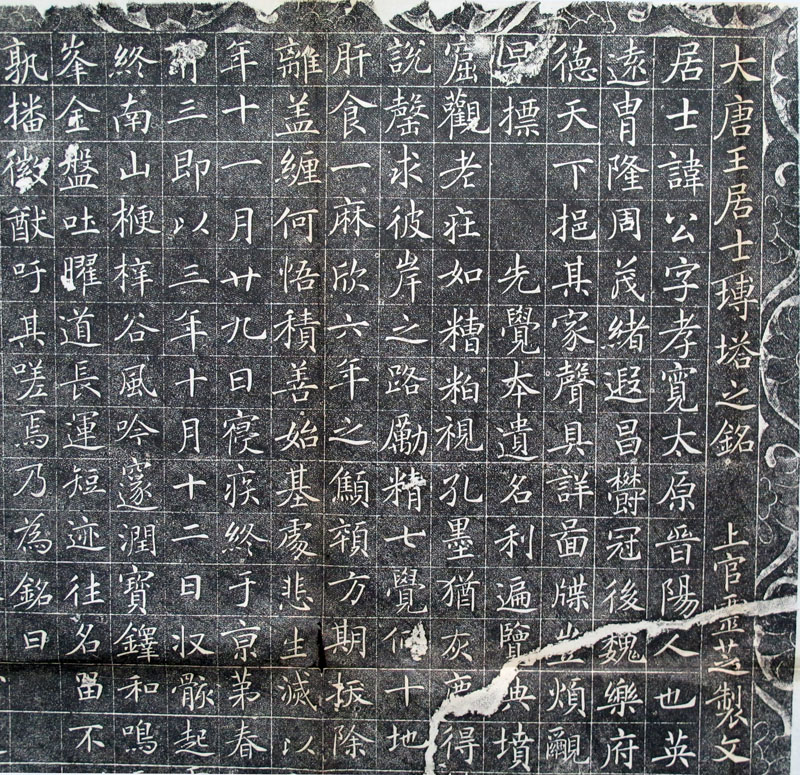 大唐王居士塼塔之銘 上官靈芝製文
居士諱公字孝寬太原晉陽人也英
遠胄隆周茂緒遐昌欝冠後魏樂府
德天下挹其家聲具詳圖牒豈煩覼
早標 先覺本遺名利遍覽典墳
窟觀老庄如糟粕視孔墨猶灰塵得
說罄求彼岸之路勵精七覺仰十地
肝食一麻欣六年之顦顇方期振除
離盖纏何悟積善始基處悲生滅以
年十一月廿九日寢疾終于京第春
有三即以三年十月十二日收骸起
終南山楩梓谷風吟邃澗寶鐸和鳴
峯金盤吐曜道長運短迹往名留不
孰播徽猷吁其嗟焉乃為銘曰